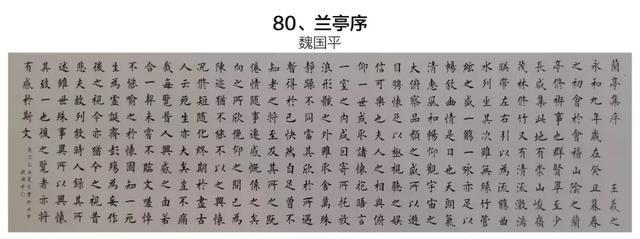 80、兰亭序
魏国平
蘭亭集序 王羲之
永和九年歲在癸丑暮春
之初會於會稽山陰之蘭
亭脩禊事也群賢畢至少
長咸集此地有崇山峻嶺
茂林脩竹又有清流激湍
暎帶左右引以為流觴曲
水列坐其次雖無絲竹管
絃之盛一觴一詠亦足以
暢敘幽情是日也天朗氣
清惠風和暢仰觀宇宙之
大俯察品類之盛所以遊
目騁懷足以極視聽之娛
信可樂也夫人之相與俯
仰一世或取諸懷抱晤言
一室之內或因寄所託放
浪形骸之外雖趣舍萬殊
靜躁不同當其欣於所遇
暫得於己快然自足曾不
知老之將至及其所之既
倦情隨事遷感慨係之矣
向之所欣俛仰之間已為
陳迹猶不能不以之興懷
況脩短隨化終期於盡古
人云死生亦大矣豈不痛
哉每覽昔人興感之由若
合一契未嘗不臨文嗟悼
不能喻之於懷固知一死
生為虛誕齊彭殤為妄作
後之視今亦猶今之視昔
悲夫故列敘時人錄其所
述雖世殊事異所以興懷
其致一也後之覽者亦將
有感於斯文